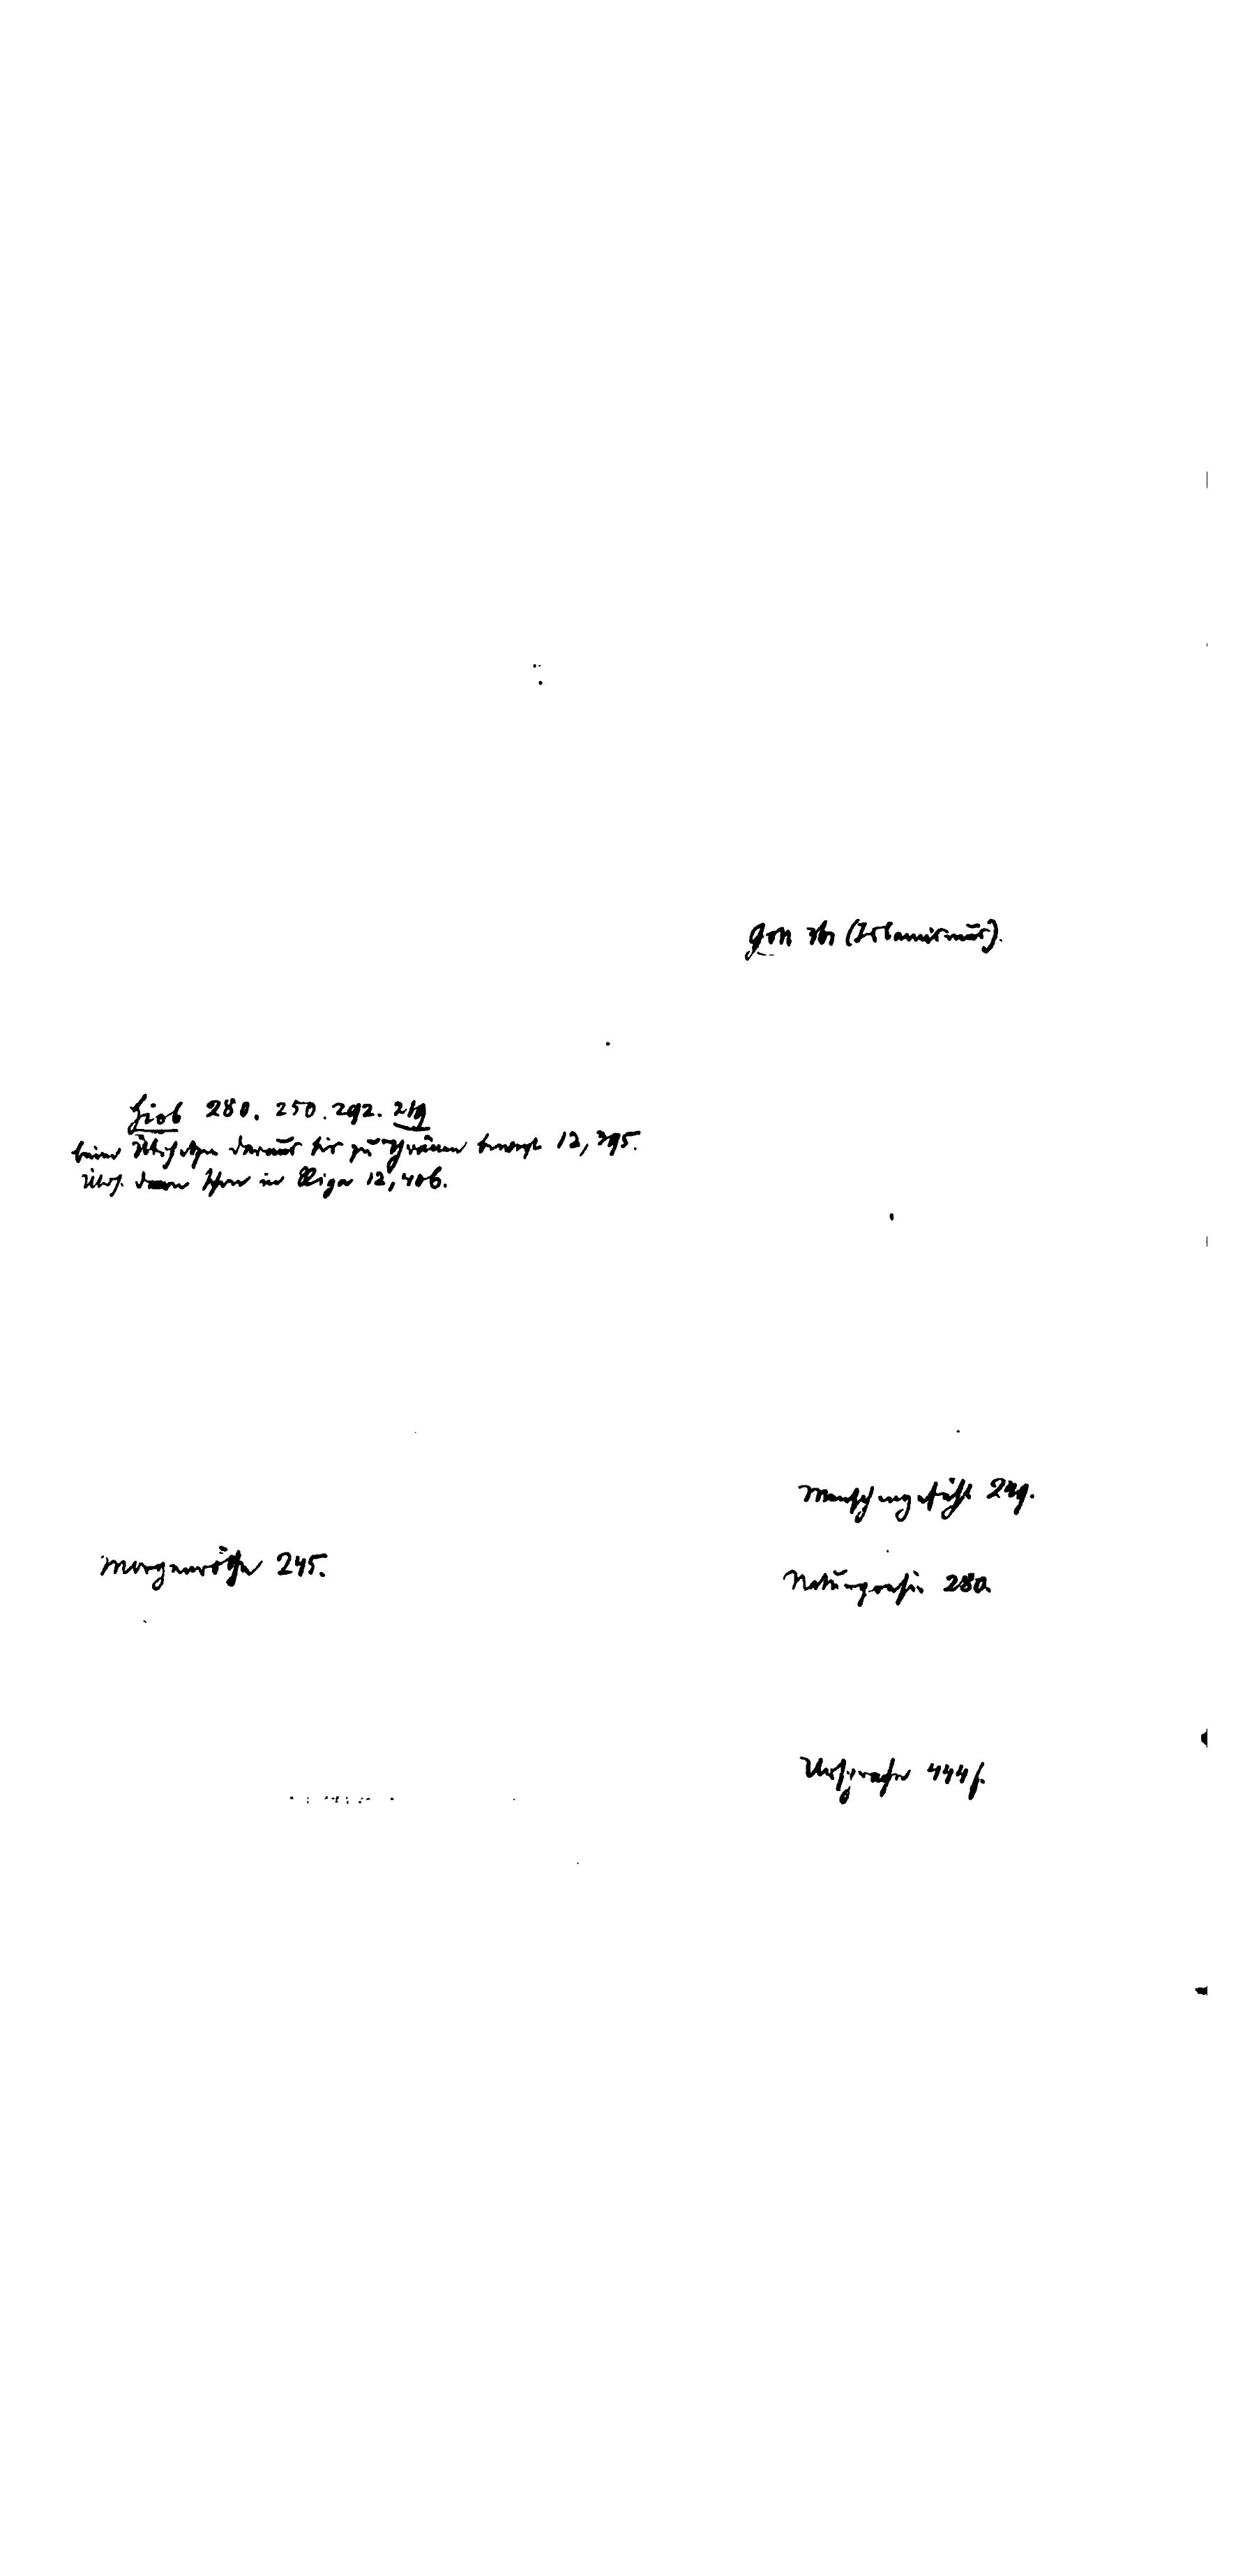 Gott 361 (Islamismus).
Hiob 280. 250. 292. 219
beim Übersetzen daraus bis zu Thränen bewegt 12, 395.
Übers. davon schon in Riga 12, 406.
Menschengefühl 249.
Morgenröthe 245.
Naturpoesie 280.
Ursprache 444 f.